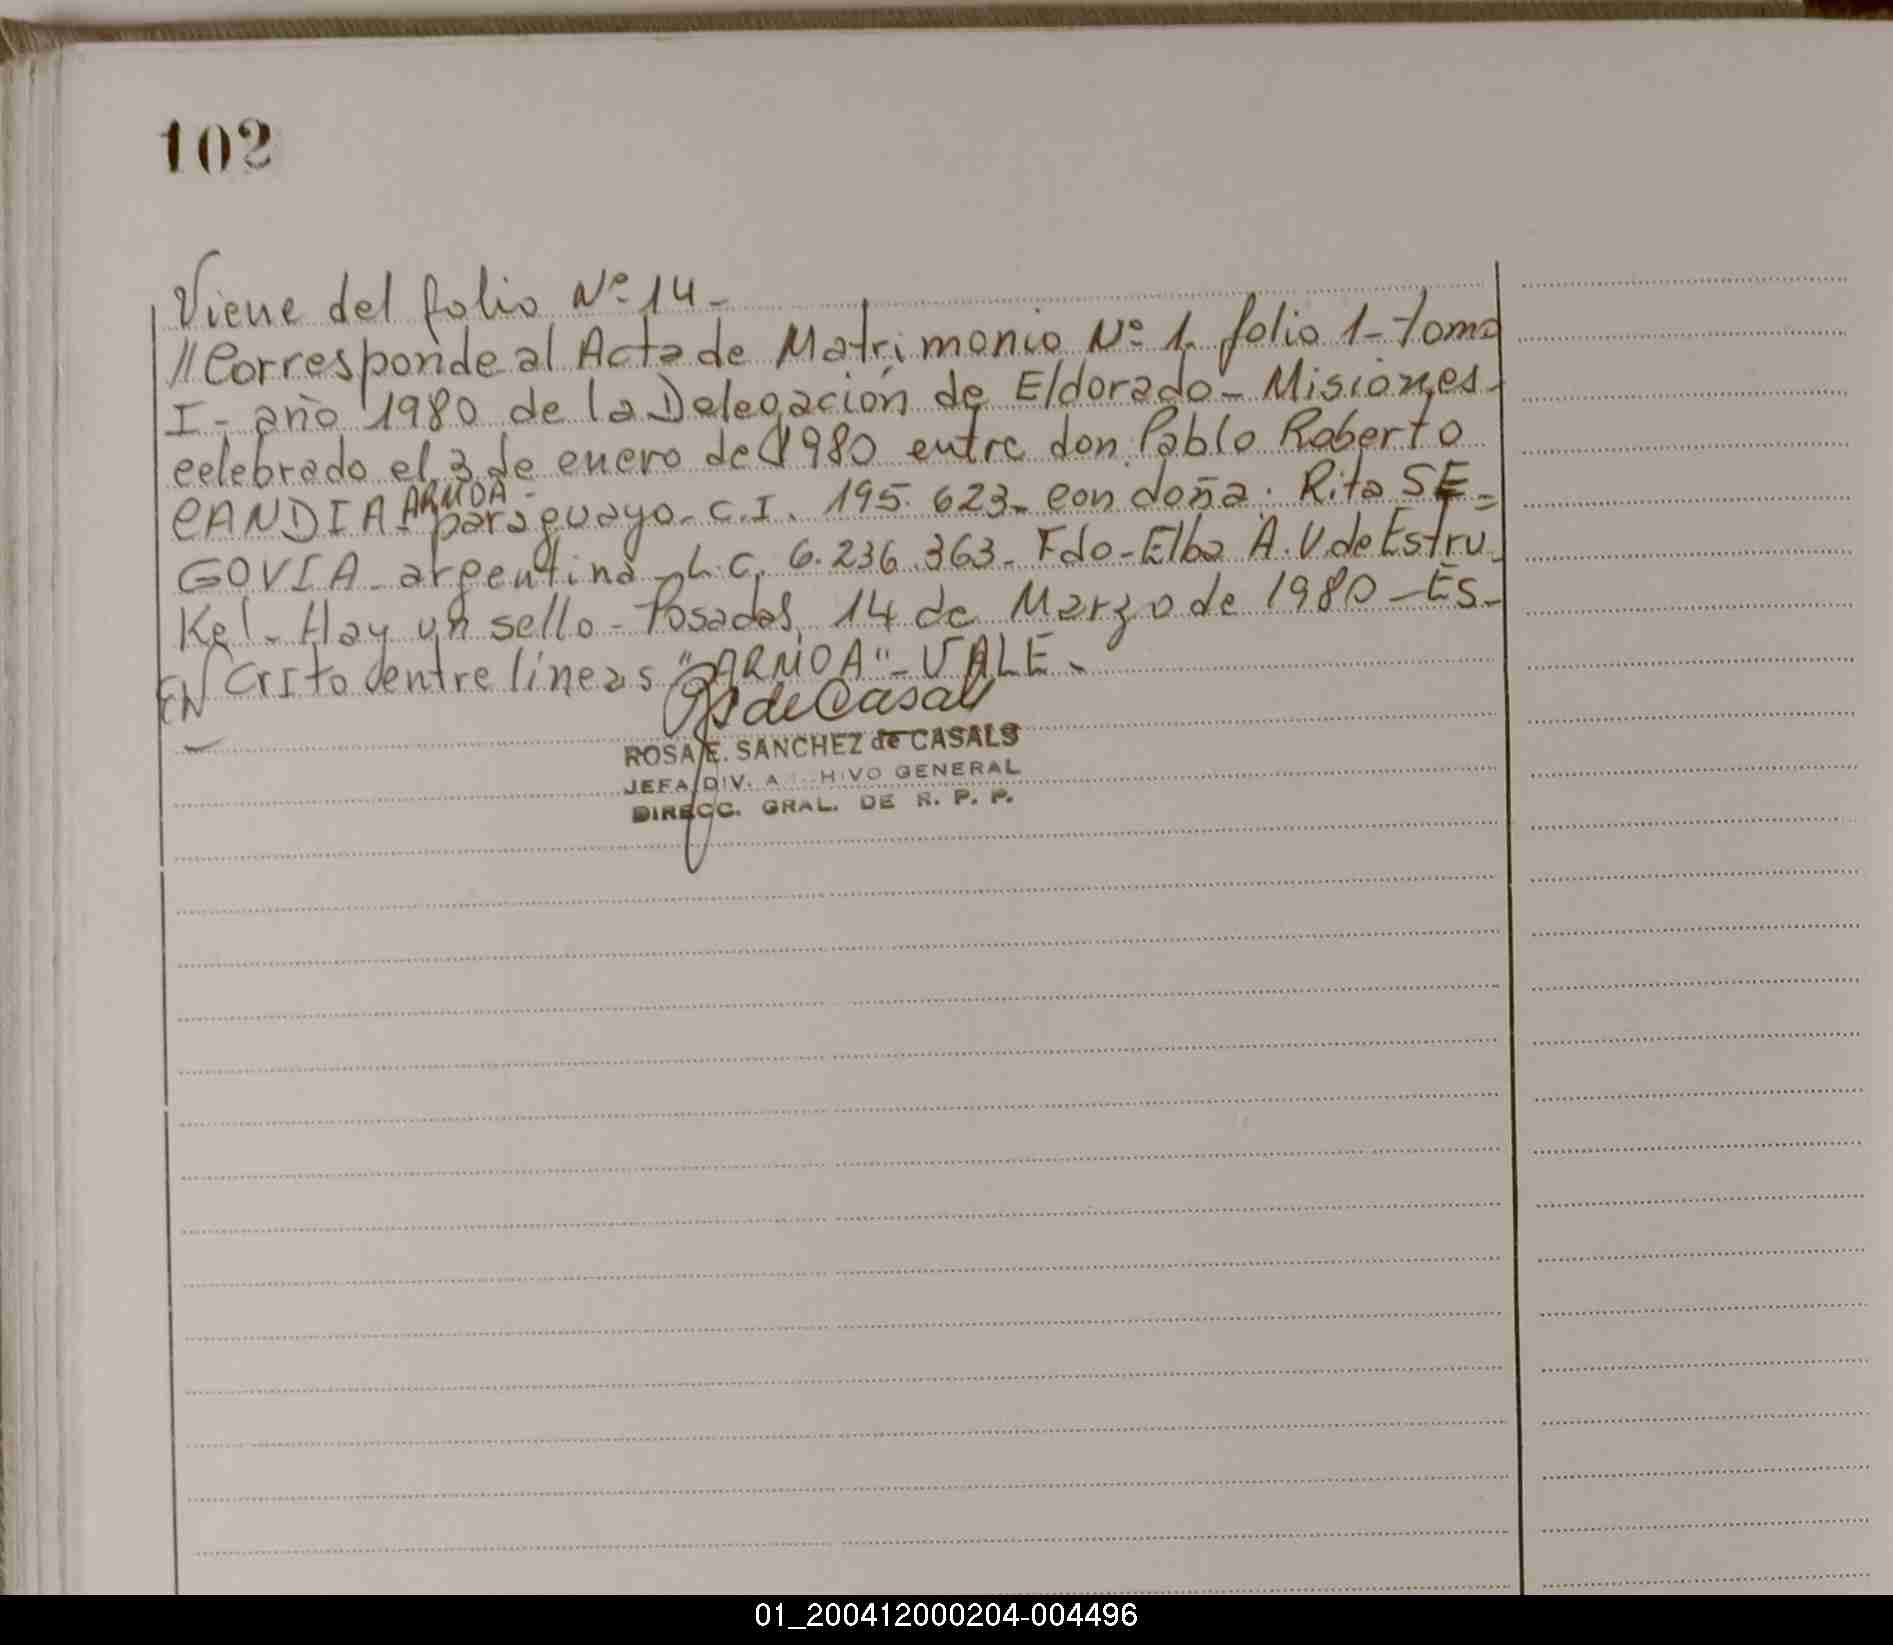 102
Viene del folio Nº 14 -
// Corresponde al Acta de Matrimonio Nº 1. folio 1 - Tomo
I - año 1980 de la Delegación de Eldorado - Misiones -
celebrado el 3 de enero de 1980 entre don Pablo Roberto
ARMOA -
CANDIA - paraguayo - C.I. 195.623 - con doña: Rita SE -
GOVIA - argentina - L.C. 6.236.363 - Fdo - Elba A. V. de Estru -
Kel - Hay un sello - Posadas, 14 de Marzo de 1980 - Es -
crito entre lineas "ARMOA" - VALE -
EN
ROSA E. SANCHEZ de CASALS
JEFA DIV. A HIVO GENERAL
DIRECC. GRAL. DE R. P. P.
01_200412000204-004496